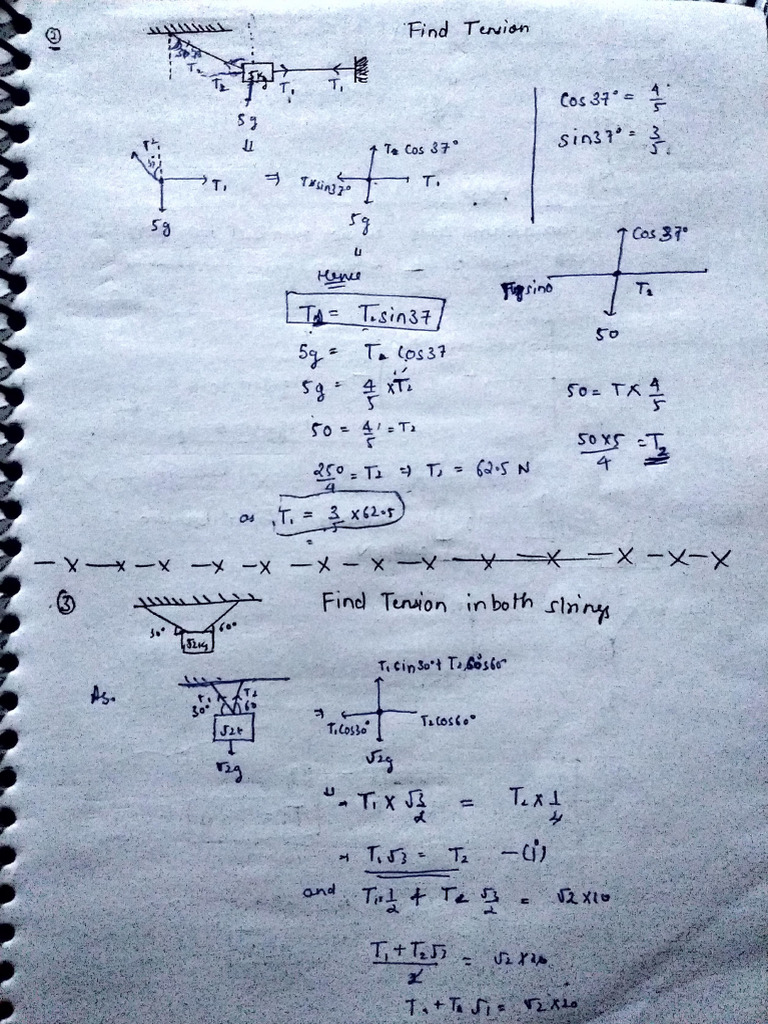 ② Find Tension
5kg
T₂ T₁ T₁
5g
cos 37° = 4/5
sin 37° = 3/5
T₁
5g
⇒
T₂ cos 37°
T₂ sin37° T₁
5g
Cos 37°
T₂
50
Hence
T₁ = T₂ sin37
5g = T₂ cos37
5g = 4/5 × T₂
50 = 4/5 = T₂
250/4 = T₂ ⇒ T₂ = 62.5 N
as T₁ = 3/5 × 62.5
50 = T × 4/5
50×5/4 = T₂
— x — x — x — x — x — x — x — x — x — x — x — x
③ Find Tension in both strings
30° 60°
√2kg
As.
T₁ T₂
30° 60
√2k
√2g
⇒
T₁ Cin30° + T₂ cos60°
T₁cos30° T₂cos60°
√2g
⇒ T₁ × √3/2 = T₂ × 1/2
⇒ T₁√3 = T₂ —(i)
and T₁ 1/2 + T₂ √3/2 = √2×10
T₁ + T₂√3/2 = √2×20
T₁ + T₂ √3 = √2×20